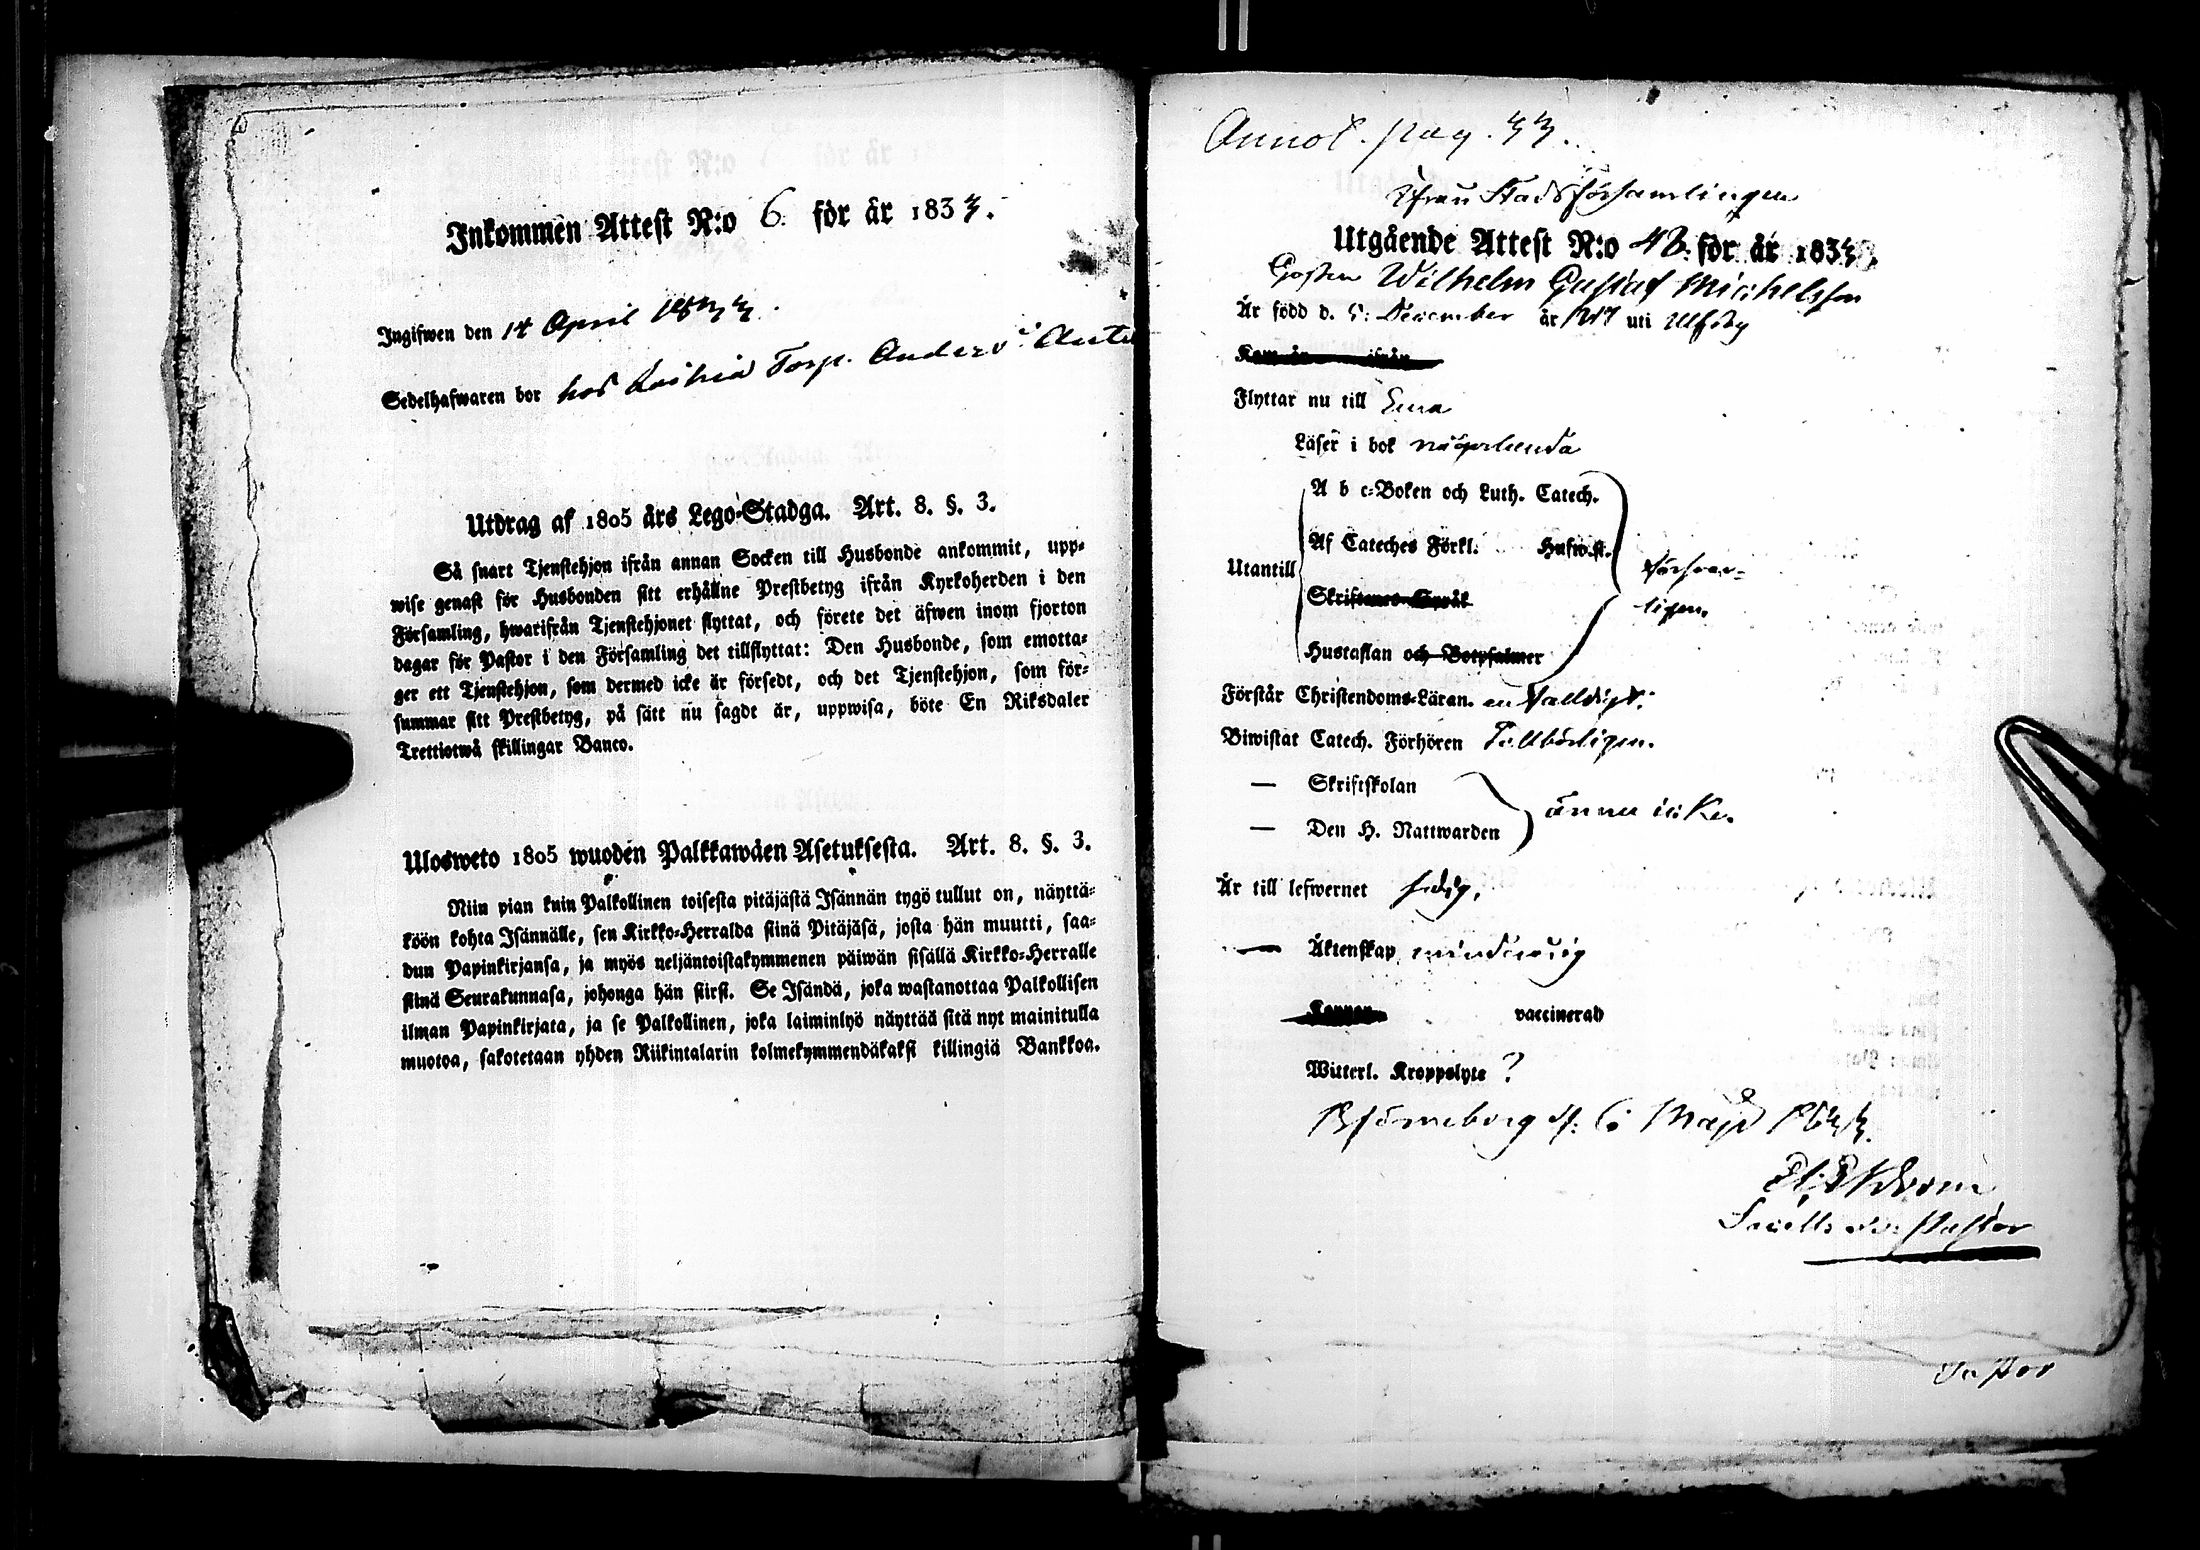 Inkommen Attest N:o 6. för år 1833.
Ingifwen den 14 April 1833.
Sedelhafwaren bor hos Torp. Anders
Utdrag af 1805 års Lego-Stadga. Art. 8. §. 3.
Så snart Tjenstehjon ifrån annan Socken till Husbonde ankommit, upp-
wise genast för Husbonden sitt erhållne Prestbetyg ifrån Kyrkoherden i den
Församling, hwarifrån Tjenstehjonet flyttat, och förete det äfwen inom fjorton
dagar för Pastor i den Församling det tillflyttat: Den Husbonde, som emotta-
ger ett Tjenstehjon, som dermed icke är försedt, och det Tjenstehjon, som för-
summar sitt Prestbetyg, på sätt nu sagdt är, uppwisa, böte En Riksdaler
Trettiotwå skillingar Banco.
Ulosweto 1805 wuoden Palkkawäen Asetuksesta. Art. 8. §. 3.
Niin pian kuin Palkollinen toisesta pitäjästä Isännän tygö tullut on, näyttä-
köön kohta Isännälle, sen Kirkko-Herralda siinä Pitäjäsä, josta hän muutti, saa-
dun Papinkirjansa, ja myös neljäntoistakymmenen päiwän sisällä Kirkko-Herralle
siinä Seurakunnasa, johonga hän siirst. Se Isändä, joka wastanottaa Palkollisen
ilman Papinkirjata, ja se Palkollinen, joka laiminlyö näyttää sitä nyt mainitulla
muotoa, sakotetaan yhden Riikintalarin kolmekymmendäkaksi killingiä Bankkoa.
Annot. pag. 33.
Ifrån Stadsförsamlingen
Utgående Attest N:o 43. för år 1833.
Gossen Wilhelm Gustaf Michelsson
År född d. 5: December år uti Ulfsby
Kom år ifrån
Flyttar nu till Eura
Läser i bok någorlunda
A b c-Boken och Luth. Catech.
Af Cateches Förkl. Husw.st.
Utantill
Skriftenes Språk
Hustaflan och Botpsalmer
försvar-
ligen.
Förstår Christendoms-Läran. enfalldigt.
Biwistat Catech. Förhören Tillbörligen.
— Skriftskolan
— Den H. Nattwarden
ännu icke.
Är till lefwernet sedig.
— Äktenskap minderårig
Koppor vaccinerad
Witterl. Kroppslyte ?
Björneborg d. 6 Maji 1833.
Pastor
Pastor